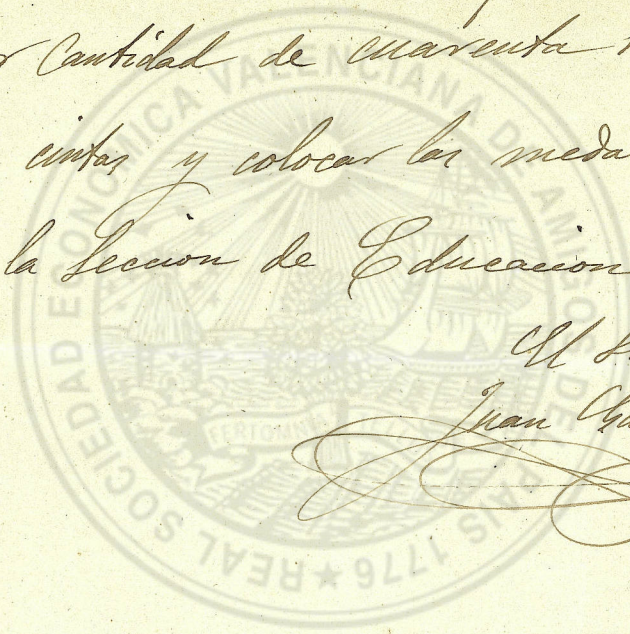 cantidad de cuarenta
cintas y colocar las meda
la Seccion de Educacion
El
Juan
REAL SOCIEDAD ECONOMICA VALENCIANA DE AMIGOS DEL PAIS 1776